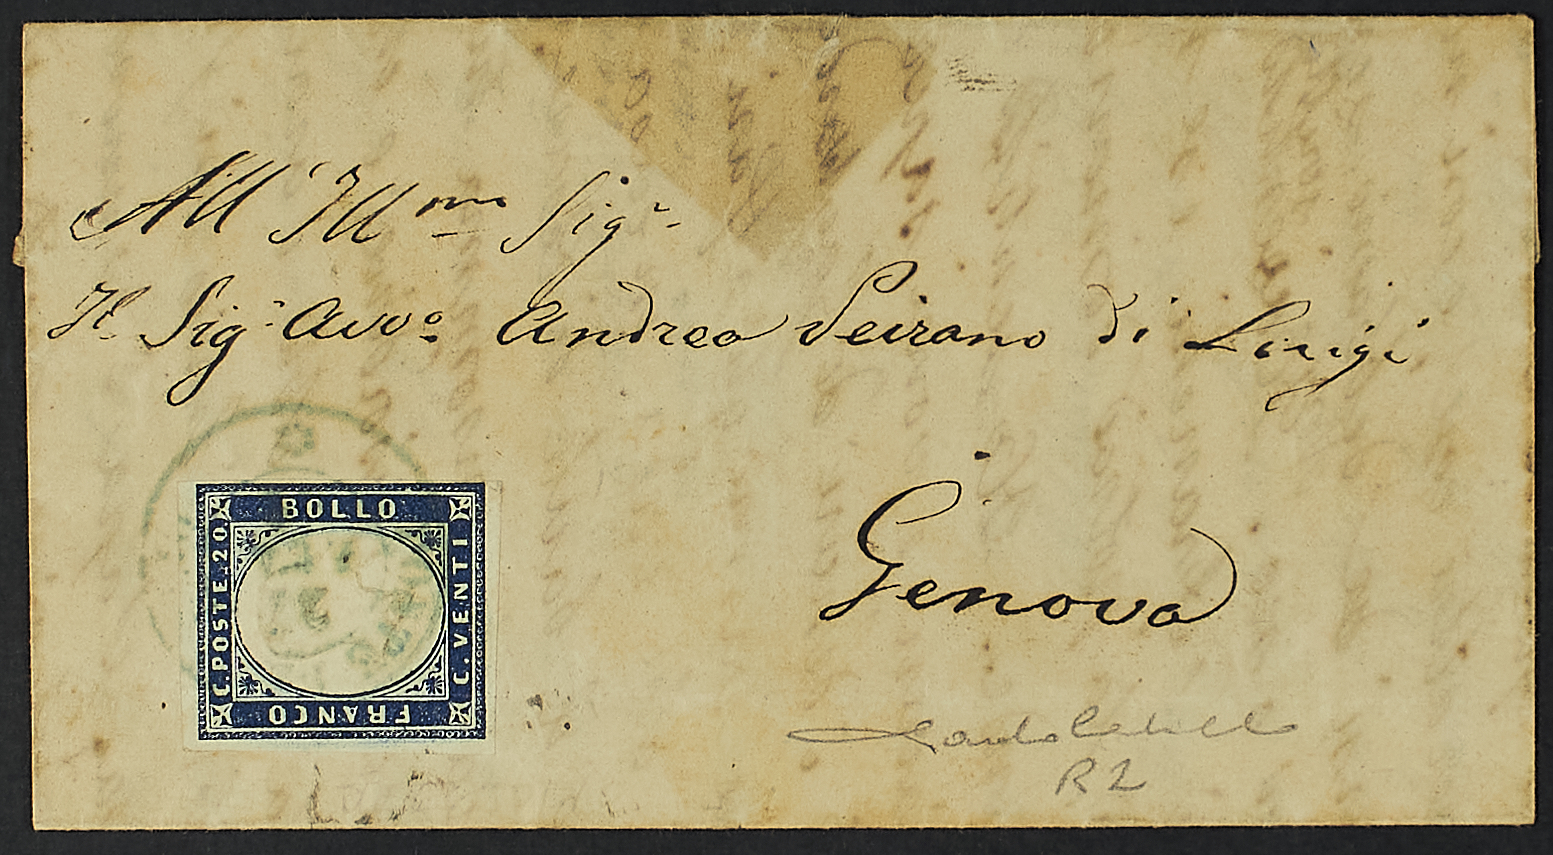 All' Ill.mo Sig.r
Il Sig.r Avv.o Andrea Peirano di Luigi
Genova
BOLLO
C. POSTE. 20.
C. VENTI
FRANCO
R2